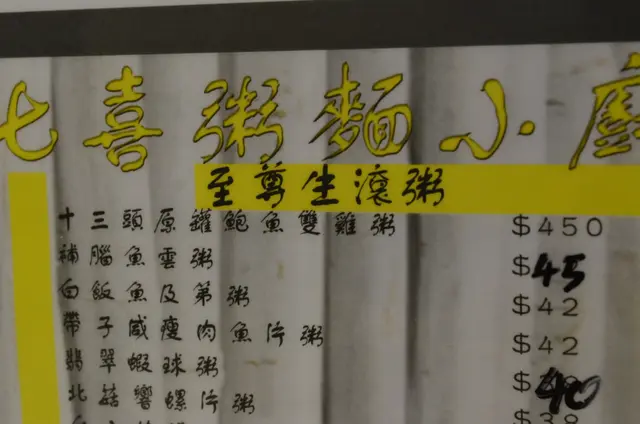 七喜粥麵小廚
至尊生滾粥
十三頭原罐鮑魚雙雞粥 $450
補腦魚雲粥 $45
白飯魚及第粥 $42
帶子咸瘦肉魚片粥 $42
翡翠蝦球粥 $40
北菇響螺片粥 $38